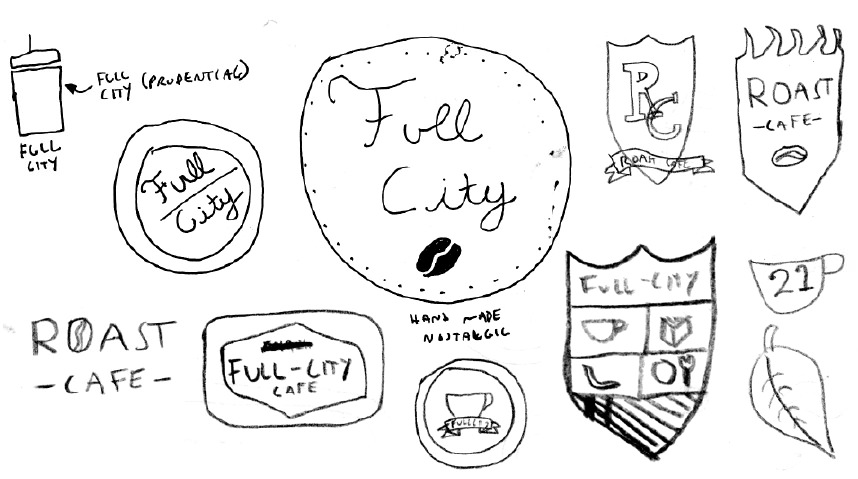 FULL
CITY (PRUDENTIAL)
FULL
CITY
Full
City
Full
City
HAND MADE
NOSTALGIC
RC
ROAST CAFE
ROAST
-CAFE-
FULL-CITY
21
ROAST
-CAFE-
FULL-CITY
CAFE